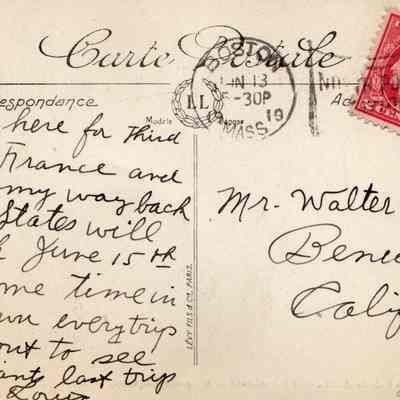 Carte Postale
BOSTON
JUN 13
5-30P
19
MASS.
espondance
LL
Modèle
here for Third
France and
my way back
States will
June 15th
me time in
un every trip
out to see
last trip
Mr. Walter
Beni
Calif
LÉVY FILS & Co. PARIS.